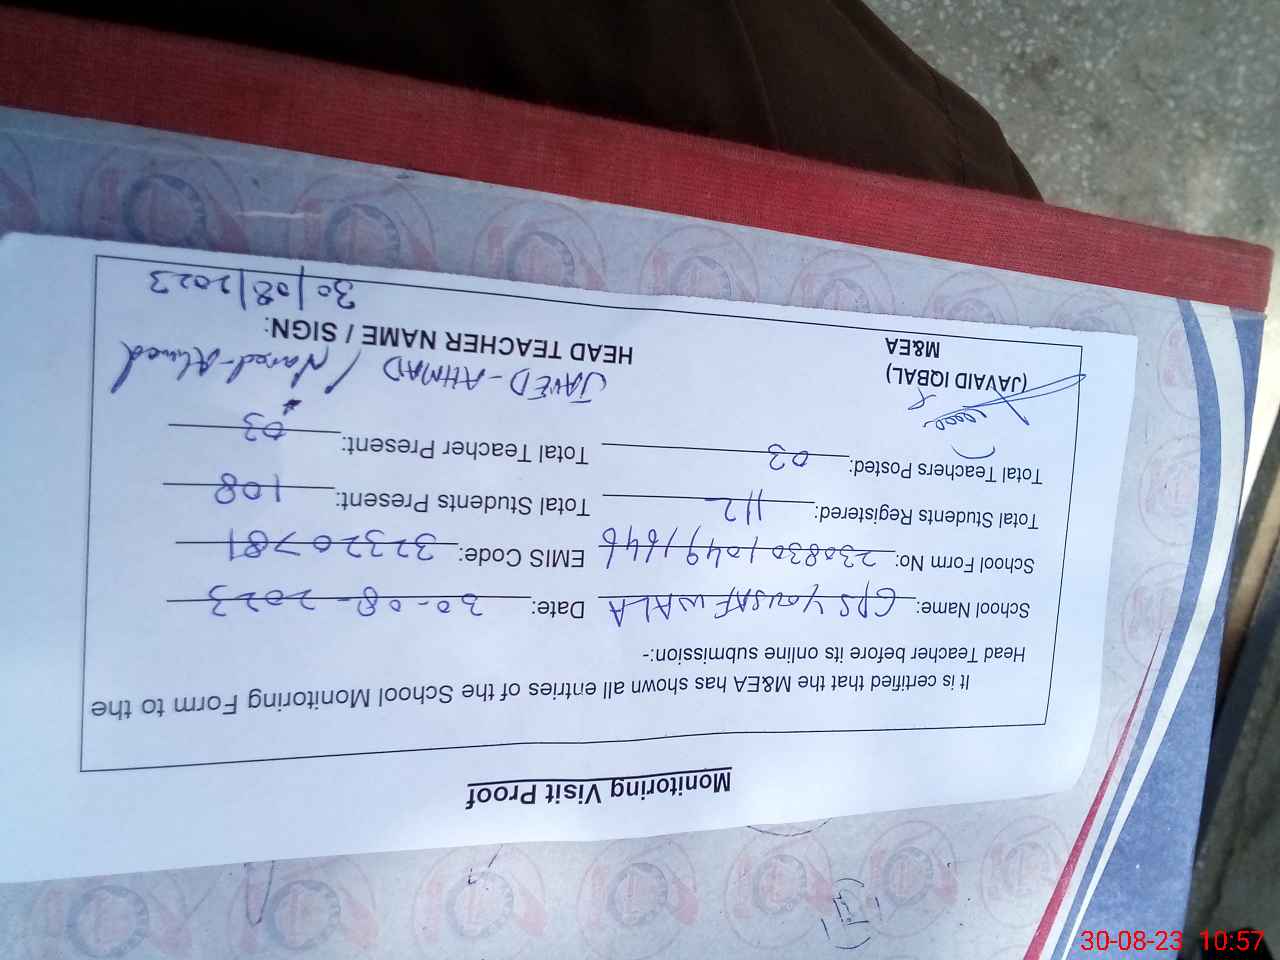 Monitoring Visit Proof
It is certified that the M&EA has shown all entries of the School Monitoring Form to the
Head Teacher before its online submission:-
School Name: GPS YOUSAF WALA Date: 30-08-2023
School Form No: 23083010491646 EMIS Code: 32320781
Total Students Registered: 112 Total Students Present: 108
Total Teachers Posted: 03 Total Teacher Present: 03
JAVED-AHMAD /
(JAVAID IQBAL)
M&EA
HEAD TEACHER NAME / SIGN:
30/08/2023
30-08-23 10:57